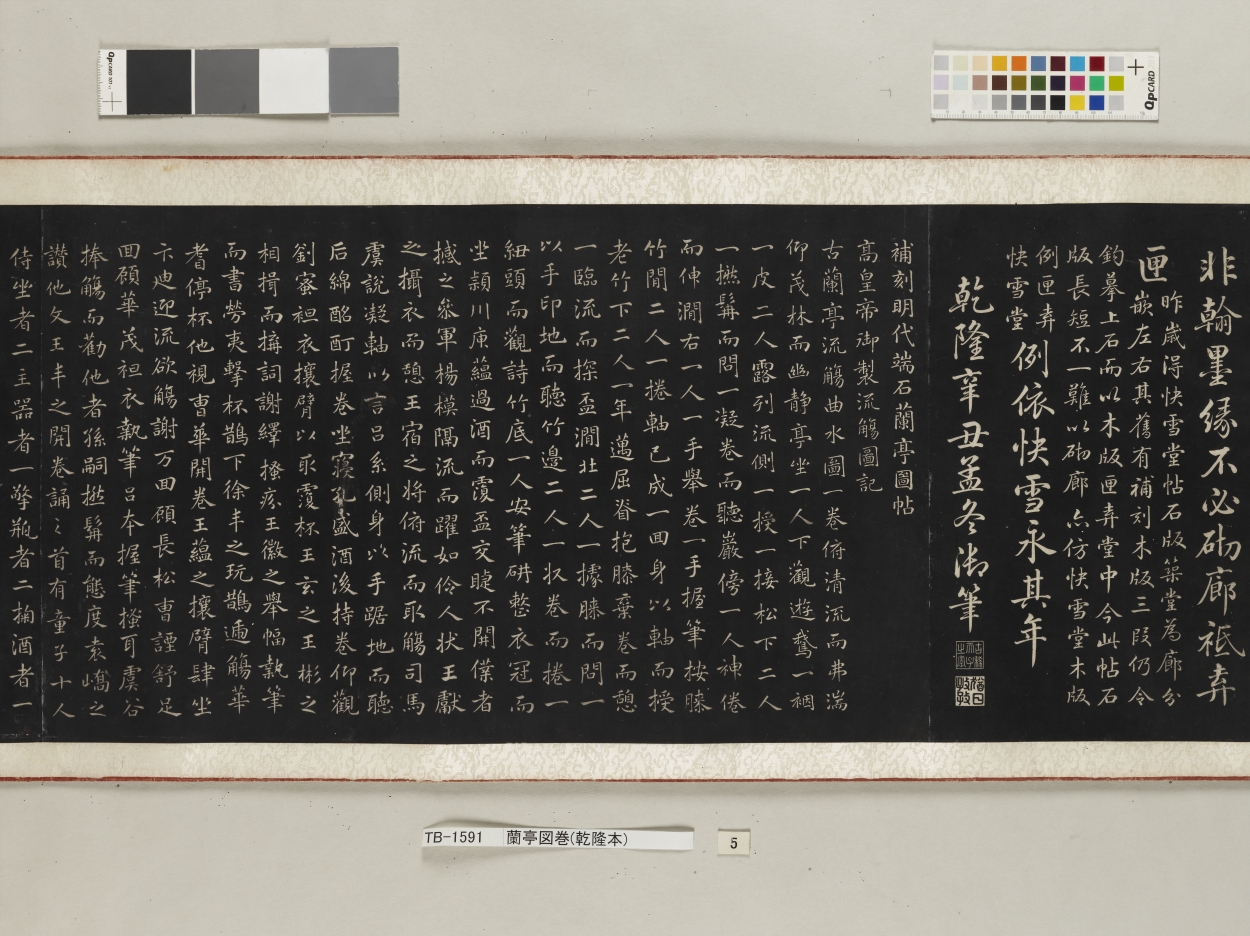 非翰墨緣不必砌廊祇弆
匣 昨歲得快雪堂帖石版築堂為廊分
嵌左右其舊有補刻木版三段仍令
鉤摹上石而以木版匣弆堂中今此帖石
版長短不一難以砌廊亦仿快雪堂木版
例匣弆
快雪堂 例依快雪永其年
乾隆辛丑孟冬御筆
補刻明代端石蘭亭圖帖
高皇帝御製流觴圖記
古蘭亭流觴曲水圖一卷俯清流而弗湍
仰茂林而幽靜亭坐一人下觀遊鵞一裀
一皮二人露列流側一授一接松下二人
一撚髯而問一凝卷而聽巖傍一人神倦
而伸澗右一人一手舉卷一手握筆按膝
竹間二人一捲軸已成一回身以軸而授
老竹下二人一年邁屈脊抱膝棄卷而憩
一臨流而探盃澗北二人一據膝而問一
以手印地而聽竹邊二人一狀卷而捲一
紐頭而觀詩竹底一人安筆硏整衣冠而
坐頴川庾蘊過酒而覆盃交睫不開僕者
撼之叅軍楊模隔流而躍如伶人狀王獻
之攝衣而憩王宿之將俯流而取觴司馬
虞說凝軸以言呂系側身以手踞地而聽
后綿酩酊握卷坐寢孔盛酒後持卷仰觀
劉宻袒衣攘臂以取覆杯王玄之王彬之
相揖而搆詞謝繹搔疥王徽之舉幅執筆
而書勞夷擊杯鵲下徐丰之玩鵲逓觴華
耆停杯他視曹華開卷王蘊之攘臂肆坐
卞迪迎流欲觴謝万回顧長松曹諲舒足
回顧華茂袒衣執筆呂本握筆搔耳虞谷
捧觴而勸他者孫嗣撚髯而態度袁嶠之
讃他文王丰之開卷誦之首有童子十人
侍坐者二主器者一擎瓶者二掬酒者一
TB-1591 蘭亭図巻(乾隆本)
5
QPCARD 101
QPCARD